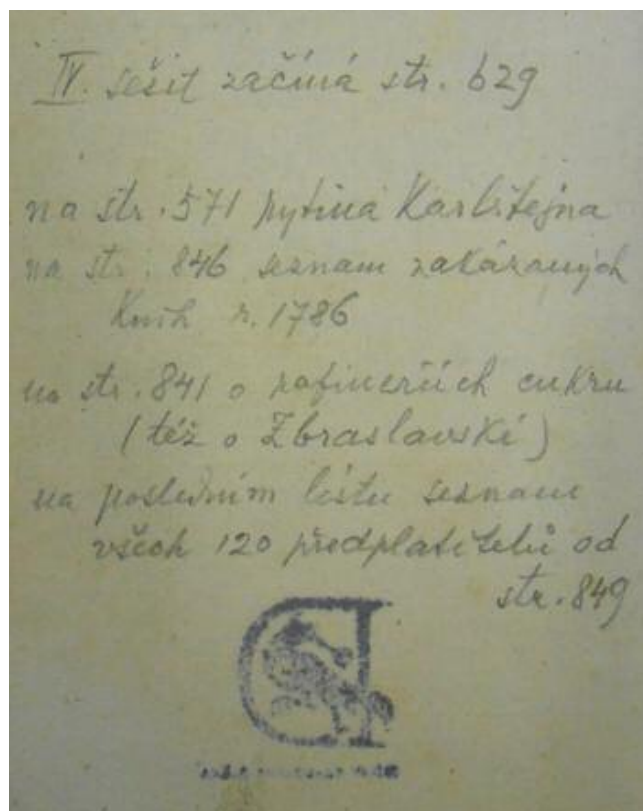 IV. sešit začíná str. 629
na str. 571 rytina Karlštejna
na str. 846 seznam zakázaných
knih r. 1786
na str. 841 o rafineriích cukru
(též o Zbraslavské)
na posledním listu seznam
všech 120 předplatitelů od
str. 849